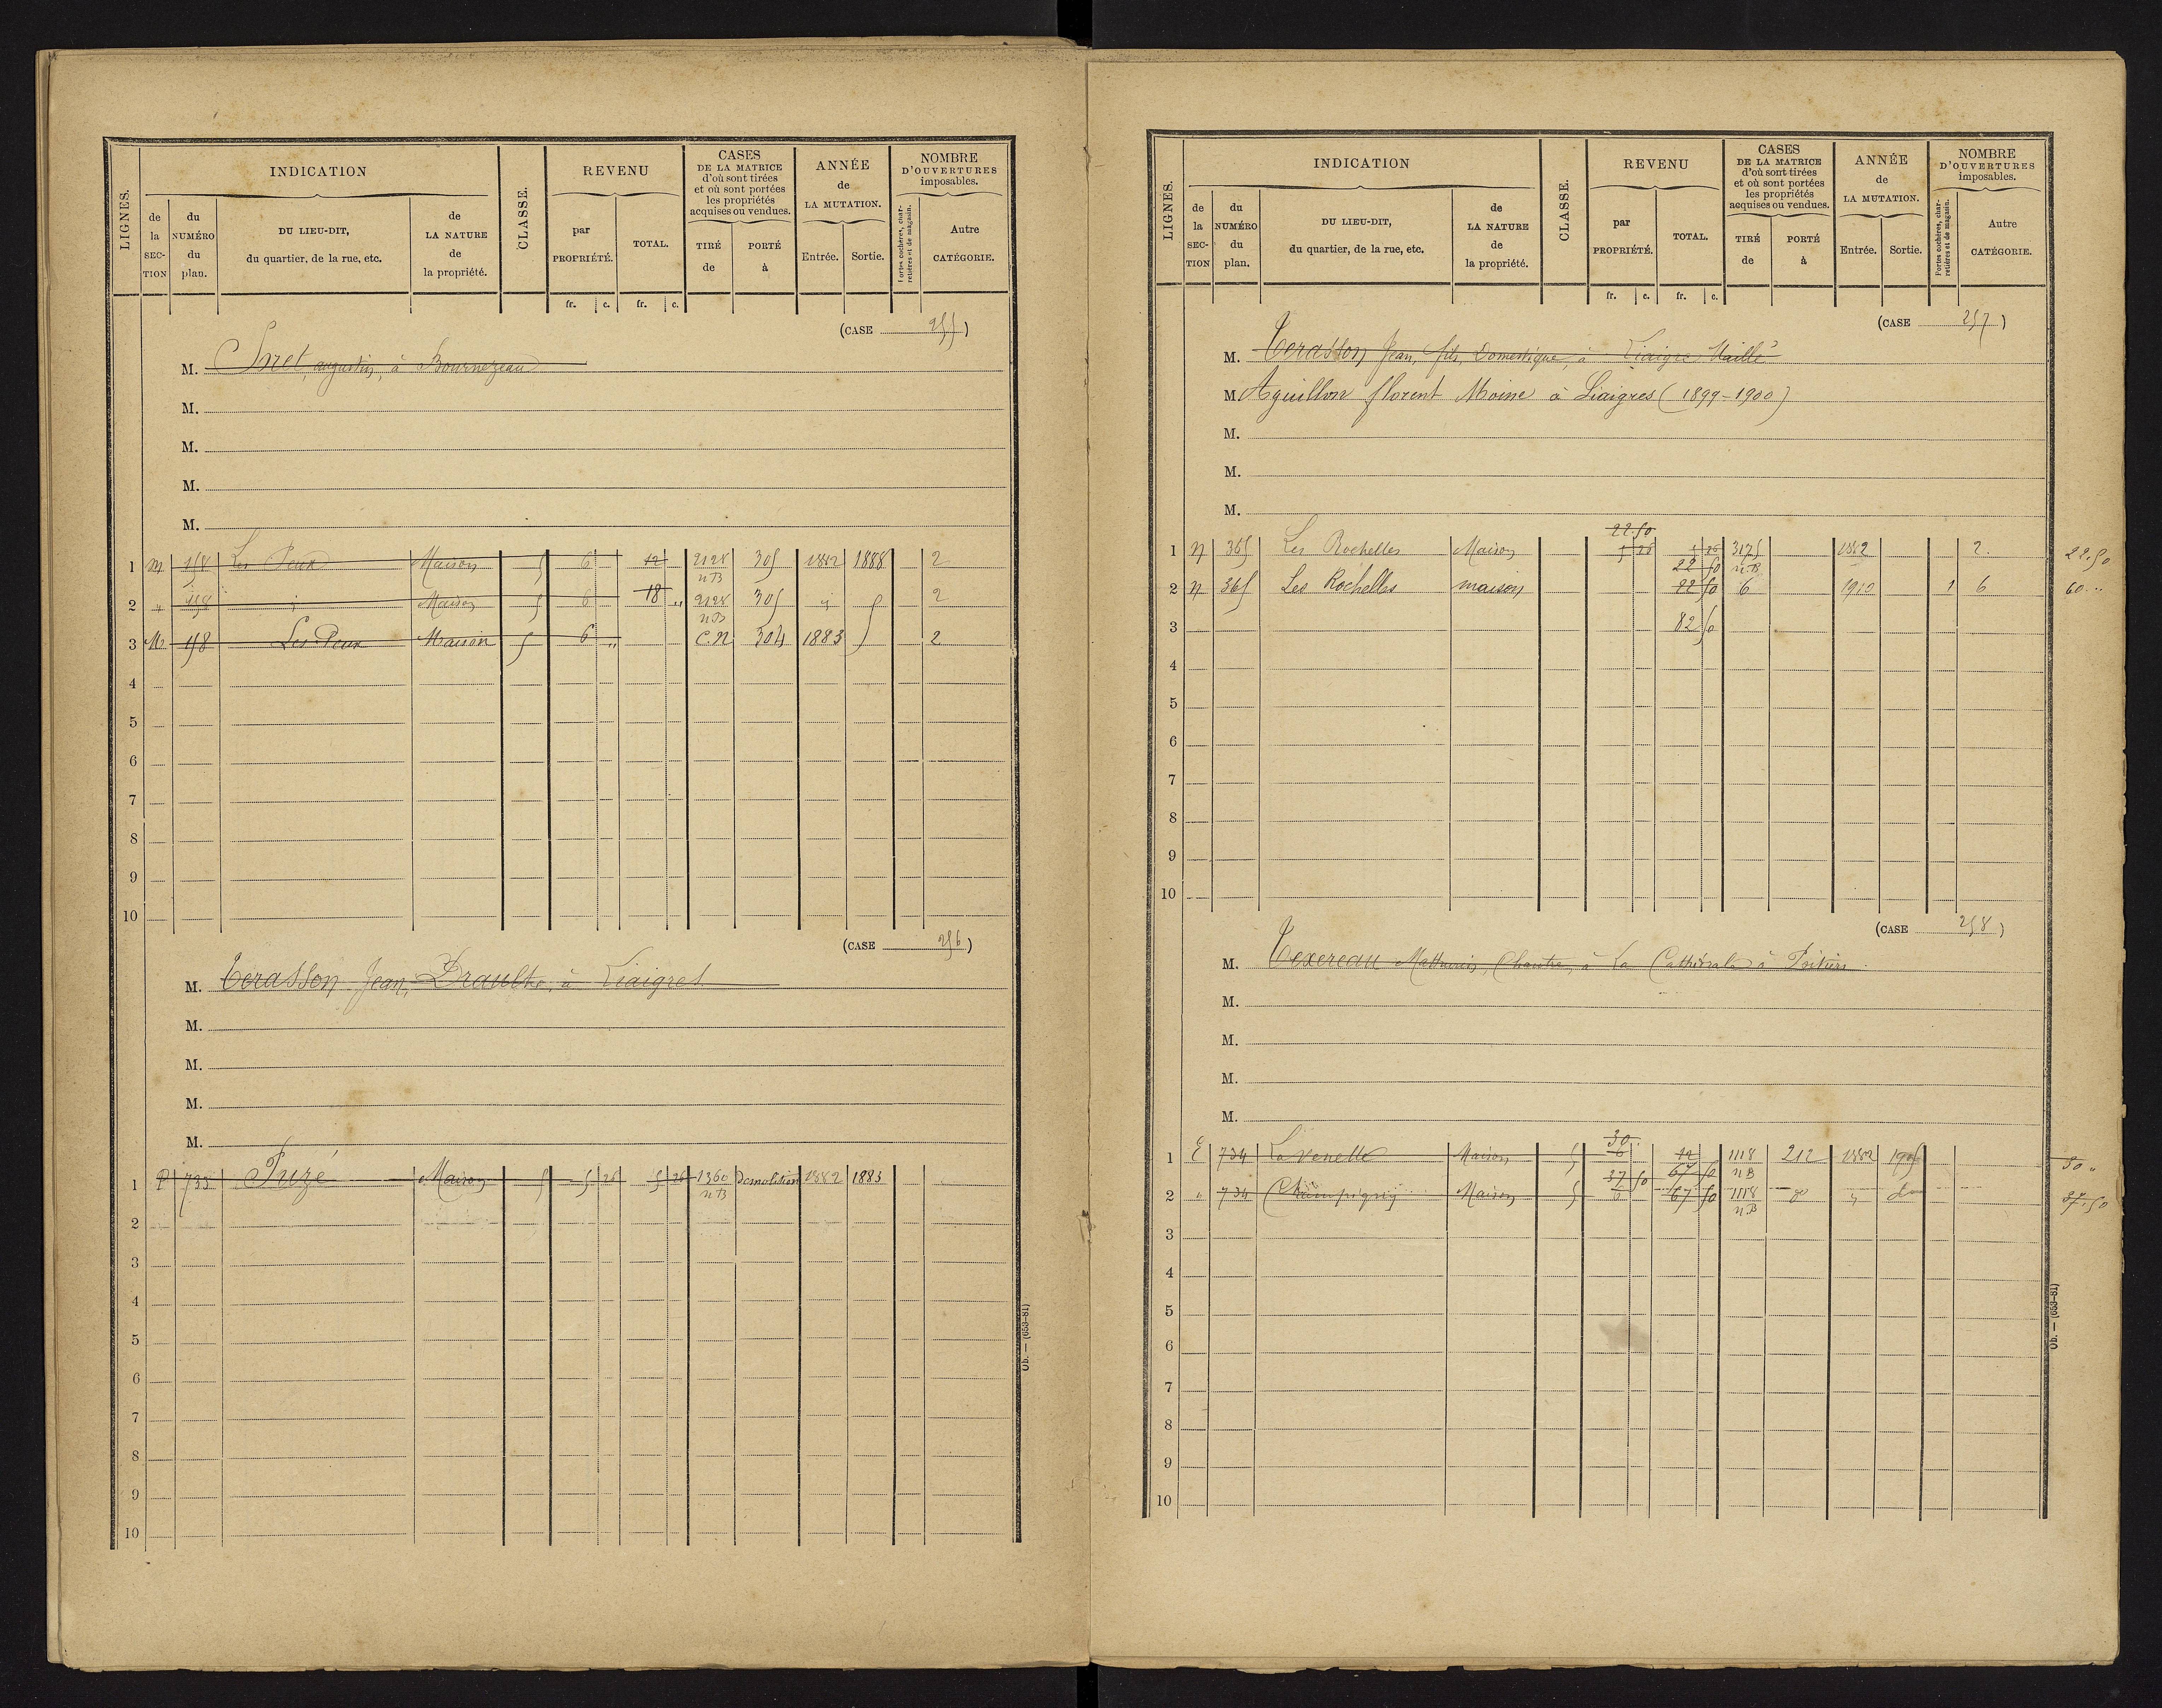 LIGNES.
INDICATION
de la SEC-TION
du NUMÉRO du plan.
DU LIEU-DIT, du quartier, de la rue, etc.
de LA NATURE de la propriété.
CLASSE.
REVENU
par PROPRIÉTÉ.
TOTAL.
CASES DE LA MATRICE d'où sont tirées et où sont portées les propriétés acquises ou vendues.
TIRÉ de
PORTÉ à
ANNÉE de LA MUTATION.
Entrée.
Sortie.
NOMBRE D'OUVERTURES imposables.
Portes cochères, charretières et de magasin.
Autre CATÉGORIE.
fr. c. fr. c.
(CASE 255)
M. Soret, augustin, à Bournezeau
M.
M.
M.
M.
1 M 158 Les Peux Maison 5 6 12 2128 nB 305 1882 1888 2
2 " 158 Maison 5 6 18 " 2128 nB 305 2
3 M 158 Les Peux Maison 5 6 " C.N 304 1883 2
4
5
6
7
8
9
10
(CASE 256)
M. Terasson Jean, Draulte, à Liaigres
M.
M.
M.
M.
1 P 733 Puzé Maison 5 5 26 5 26 1360 nB Démolition 1882 1883
2
3
4
5
6
7
8
9
10
Ob. — (653-81)
LIGNES.
INDICATION
de la SEC-TION
du NUMÉRO du plan.
DU LIEU-DIT, du quartier, de la rue, etc.
de LA NATURE de la propriété.
CLASSE.
REVENU
par PROPRIÉTÉ.
TOTAL.
CASES DE LA MATRICE d'où sont tirées et où sont portées les propriétés acquises ou vendues.
TIRÉ de
PORTÉ à
ANNÉE de LA MUTATION.
Entrée.
Sortie.
NOMBRE D'OUVERTURES imposables.
Portes cochères, charretières et de magasin.
Autre CATÉGORIE.
fr. c. fr. c.
(CASE 257)
M. Terasson Jean, fils, Domestique, à Liaigre Maillé
M Aguillon florent Moine à Liaigres (1899-1900)
M.
M.
M.
22.50
1 N 365 Les Rochelles Maison 5 26 5 26 3175 nB 1882 2. 22.50
22 50
2 N 365 Les Rochelles maison 22 50 6 1910 1 6 60..
3 82 50
4
5
6
7
8
9
10
(CASE 258)
M. Texereau Mathurin, Chantre, à la Cathédrale à Poitiers
M.
M.
M.
M.
30
1 E 734 La venelle Maison 5 6 12 1118 nB 212 1882 1905 30 "
37 50 67 50
2 " 734 Champigny Maison 5 6 67 50 1118 nB do " do 37.50
3
4
5
6
7
8
9
10
Ob. — (653-81)